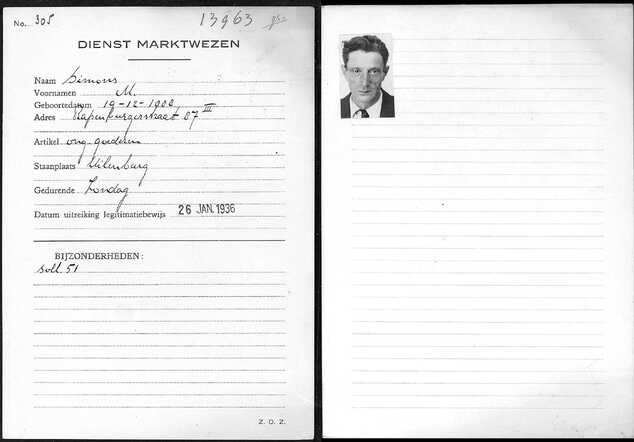 No. 305 13963
DIENST MARKTWEZEN
Naam Simons
Voornamen M.
Geboortedatum 19-12-1900
Adres Rapenburgerstraat 87 III
Artikel ong. goederen
Staanplaats Uilenburg
Gedurende Zondag
Datum uitreiking legitimatiebewijs 26 JAN. 1936
BIJZONDERHEDEN:
soll. 51
Z. O. Z.